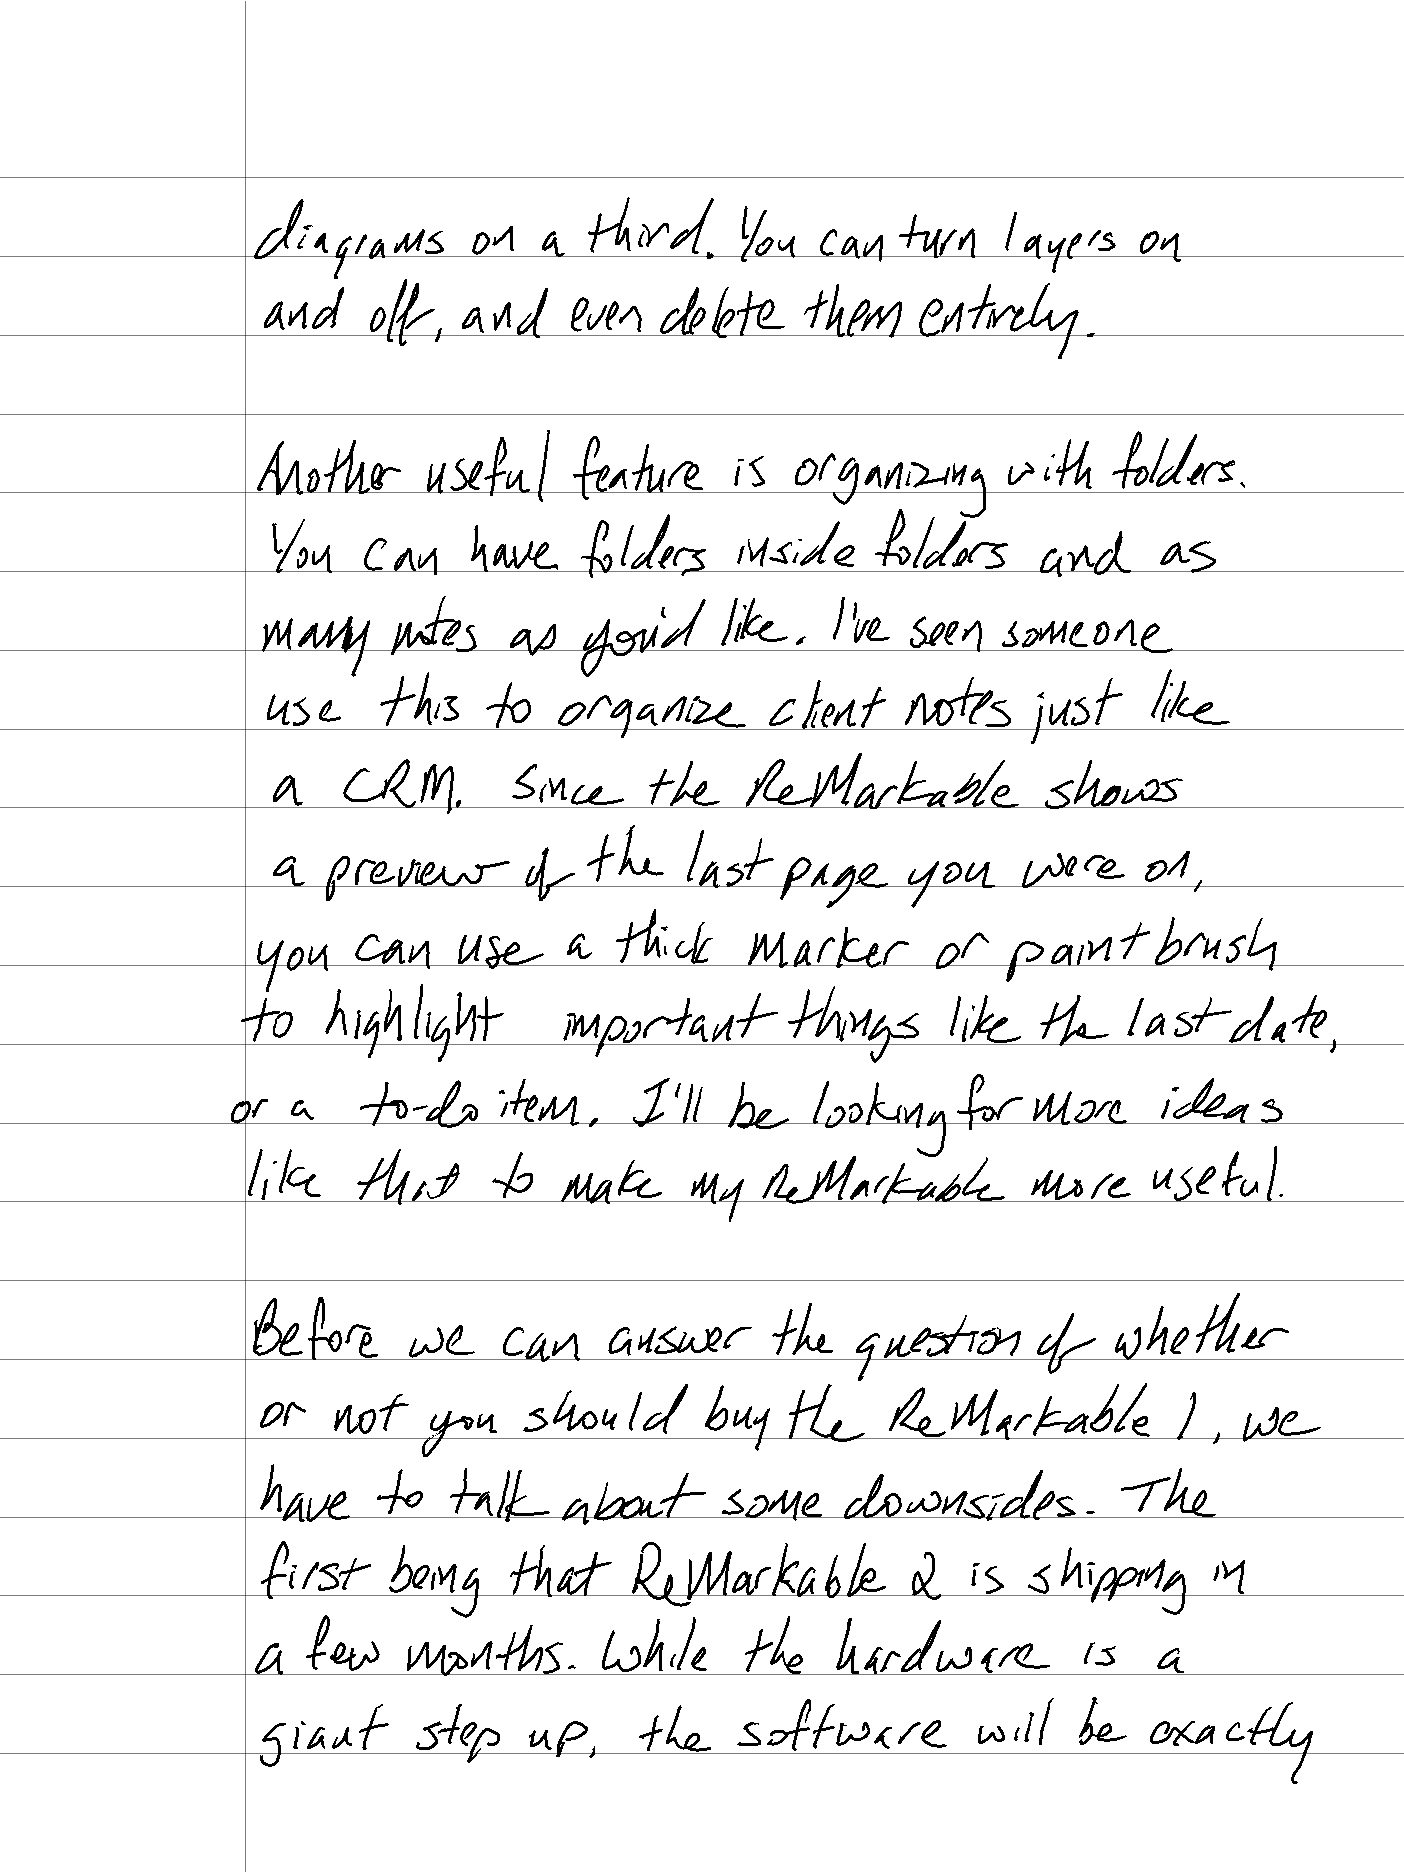 diagrams on a third. You can turn layers on
and off, and even delete them entirely.
Another useful feature is organizing with folders.
You can have folders inside folders and as
many notes as you'd like. I've seen someone
use this to organize client notes just like
a CRM. Since the ReMarkable shows
a preview of the last page you were on,
you can use a thick marker or paint brush
to highlight important things like the last date,
or a to-do item. I'll be looking for more ideas
like that to make my ReMarkable more useful.
Before we can answer the question of whether
or not you should buy the ReMarkable 1, we
have to talk about some downsides. The
first being that ReMarkable 2 is shipping in
a few months. While the hardware is a
giant step up, the software will be exactly